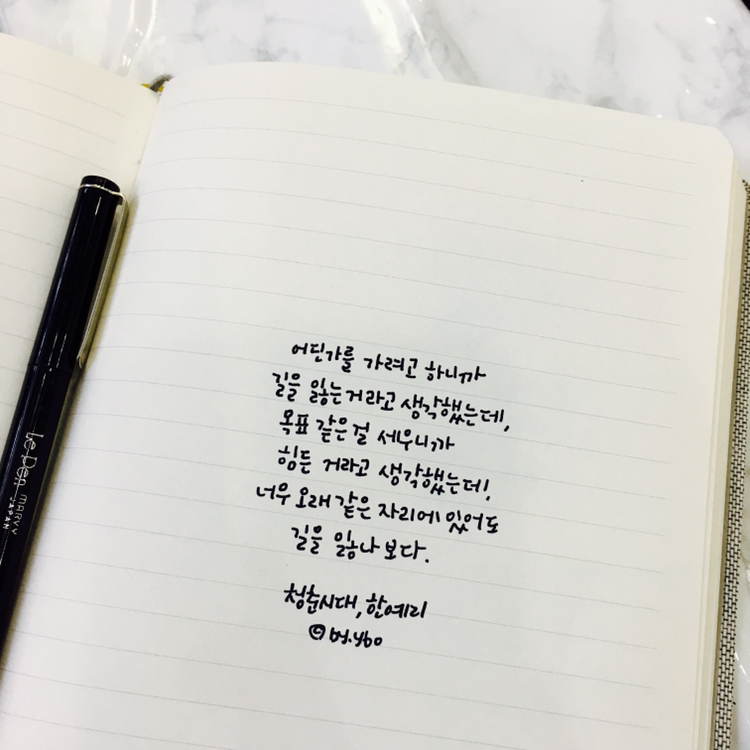 어딘가를 가려고 하니까
길을 잃는거라고 생각했는데,
목표 같은걸 세우니까
힘든 거라고 생각했는데,
너무 오래 같은 자리에 있어도
길을 잃나보다.
청춘시대, 한예리
© by.ybo
Le Pen MARVY
JAPAN